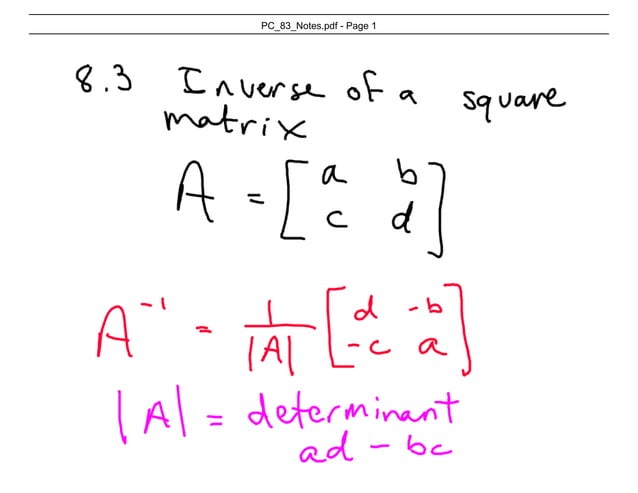 PC_83_Notes.pdf - Page 1
8.3 Inverse of a square
matrix
A = [ a b
c d ]
A⁻¹ = 1/|A| [ d -b
-c a ]
|A| = determinant
ad - bc